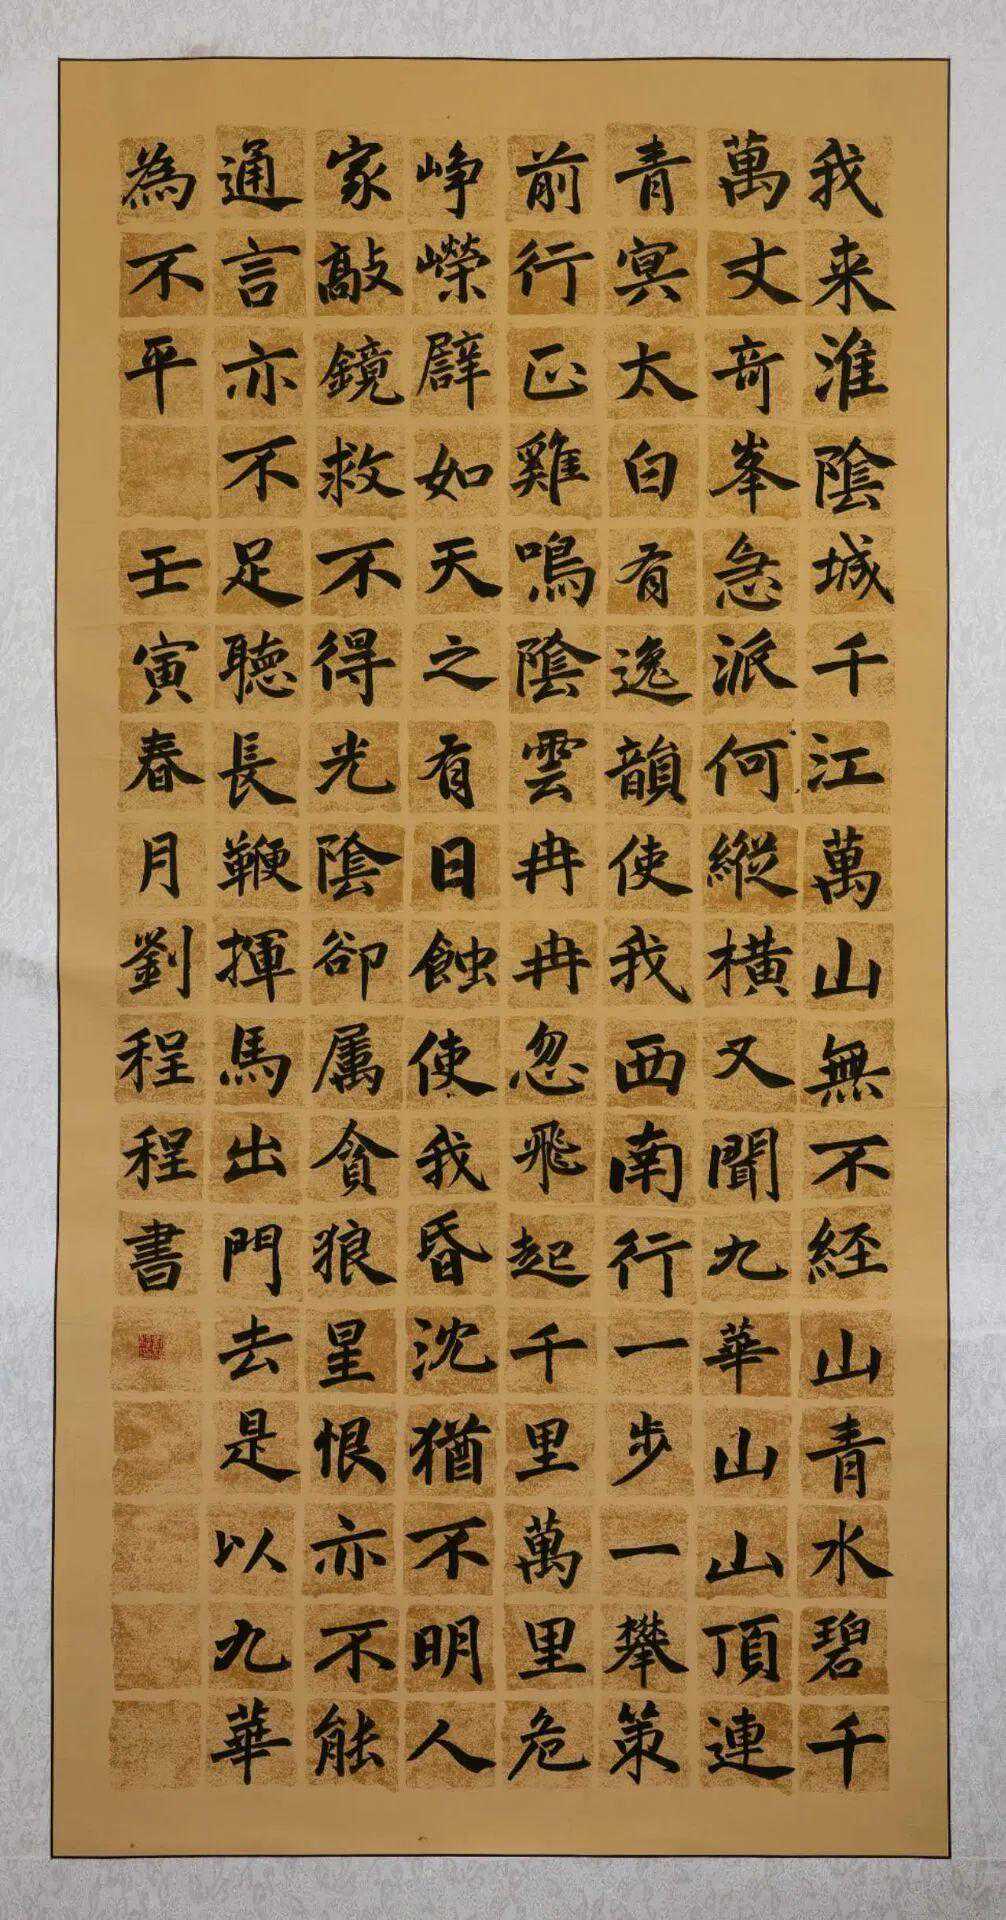 我来淮陰城千江萬山無不經山青水碧千
萬丈奇峯急派何縱橫又聞九華山山頂連
青冥太白有逸韻使我西南行一步一攀策
前行正雞鳴陰雲冉冉忽飛起千里萬里危
峥嶸譬如天之有日蝕使我昏沈猶不明人
家敲鏡救不得光陰卻属貪狼星恨亦不能
通言亦不足聽長鞭揮馬出門去是以九華
為不平 壬寅春月劉程程書